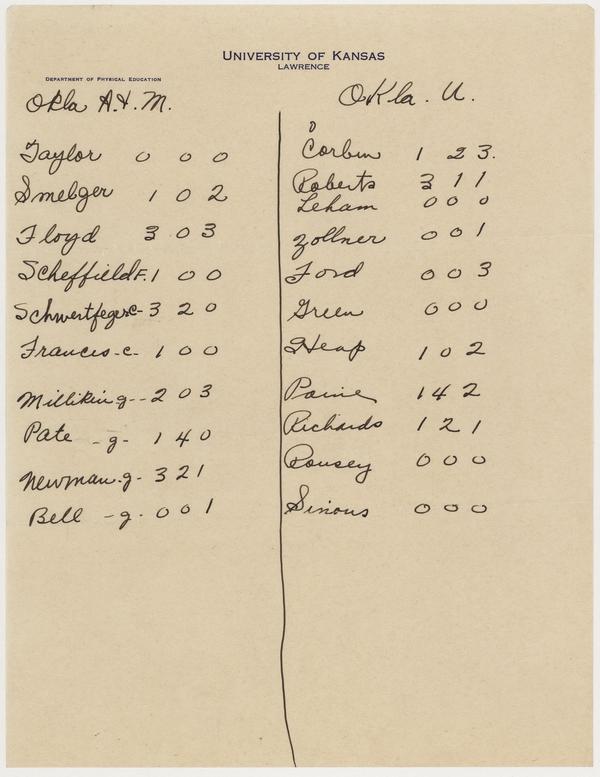 UNIVERSITY OF KANSAS
LAWRENCE
DEPARTMENT OF PHYSICAL EDUCATION
Okla A.&.M.
Taylor 0 0 0
Smelger 1 0 2
Floyd 3 0 3
Scheffield F. 1 0 0
Schwertfeger-c- 3 2 0
Francis-c- 1 0 0
Millikin g-- 2 0 3
Pate -g- 1 4 0
Newman-g- 3 2 1
Bell -g- 0 0 1
Okla. U.
Corbin 1 2 3.
Roberts 3 1 1
Leham 0 0 0
Zollner 0 0 1
Ford 0 0 3
Green 0 0 0
Heap 1 0 2
Paine 1 4 2
Richards 1 2 1
Rousey 0 0 0
Sinous 0 0 0